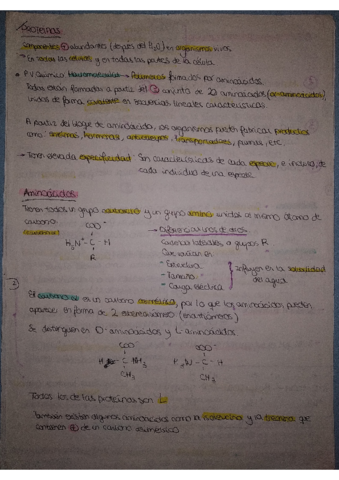 PROTEÍNAS
Componentes ⊕ abundantes (después del H₂O) en organismos vivos
- En todas las células y en todas las partes de la célula.
- P.V. Químico Polímeros formados por aminoácidos
Todas están formadas a partir del conjunto de 20 aminoácidos
unidos de forma en secuencias lineales características.
A partir del bloque de aminoácido, los organismos pueden fabricar productos
como: enzimas, hormonas, anticuerpos, transportadores, plumas, etc.
- Tienen elevada especificidad: Son características de cada especie, e incluso, de
cada individuo de una especie.
Aminoácidos
Tienen todos un grupo carboxilo y un grupo amino unidos al mismo átomo de
carbono
COO⁻ → Diferencia unos de otros:
H₃N⁺ - C - H Cadenas laterales, o grupos R
R Que varían en
- Estructura
- Tamaño influyen en la solubilidad
- Carga eléctrica del agua.
El carbono α es un carbono , por lo que los aminoácidos pueden
aparecer en forma de 2 estereoisómeros (enantiómeros)
Se distinguen en D-aminoácidos y L-aminoácidos.
COO⁻ COO⁻
H - C - NH₃ H₃N - C - H
CH₃ CH₃
Todos los de las proteínas son L
También existen algunos aminoácidos como la isoleucina y la treonina que
contienen ⊕ de un carbono asimétrico